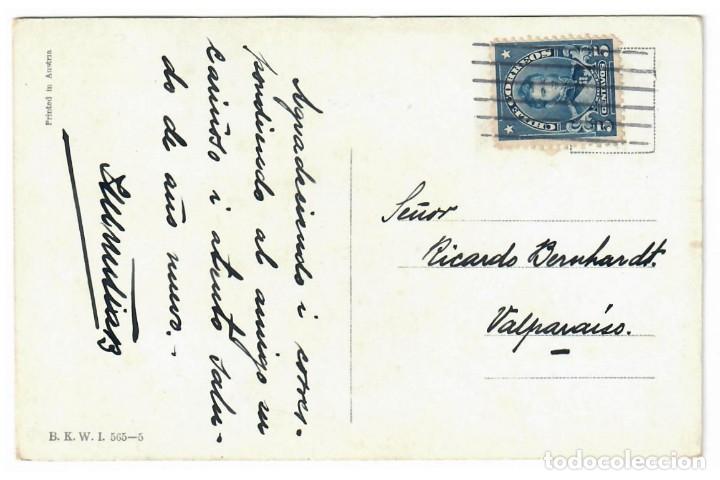 Printed in Austria
Agradeciendo i corres-
pondiendo al amigo su
cariñoso i atento salu-
do de año nuevo.-
CHILE CORREOS
5 CENTAVOS 5
Señor
Ricardo Bernhardt.
Valparaíso.
B. K. W. I. 565—5
todocoleccion.net